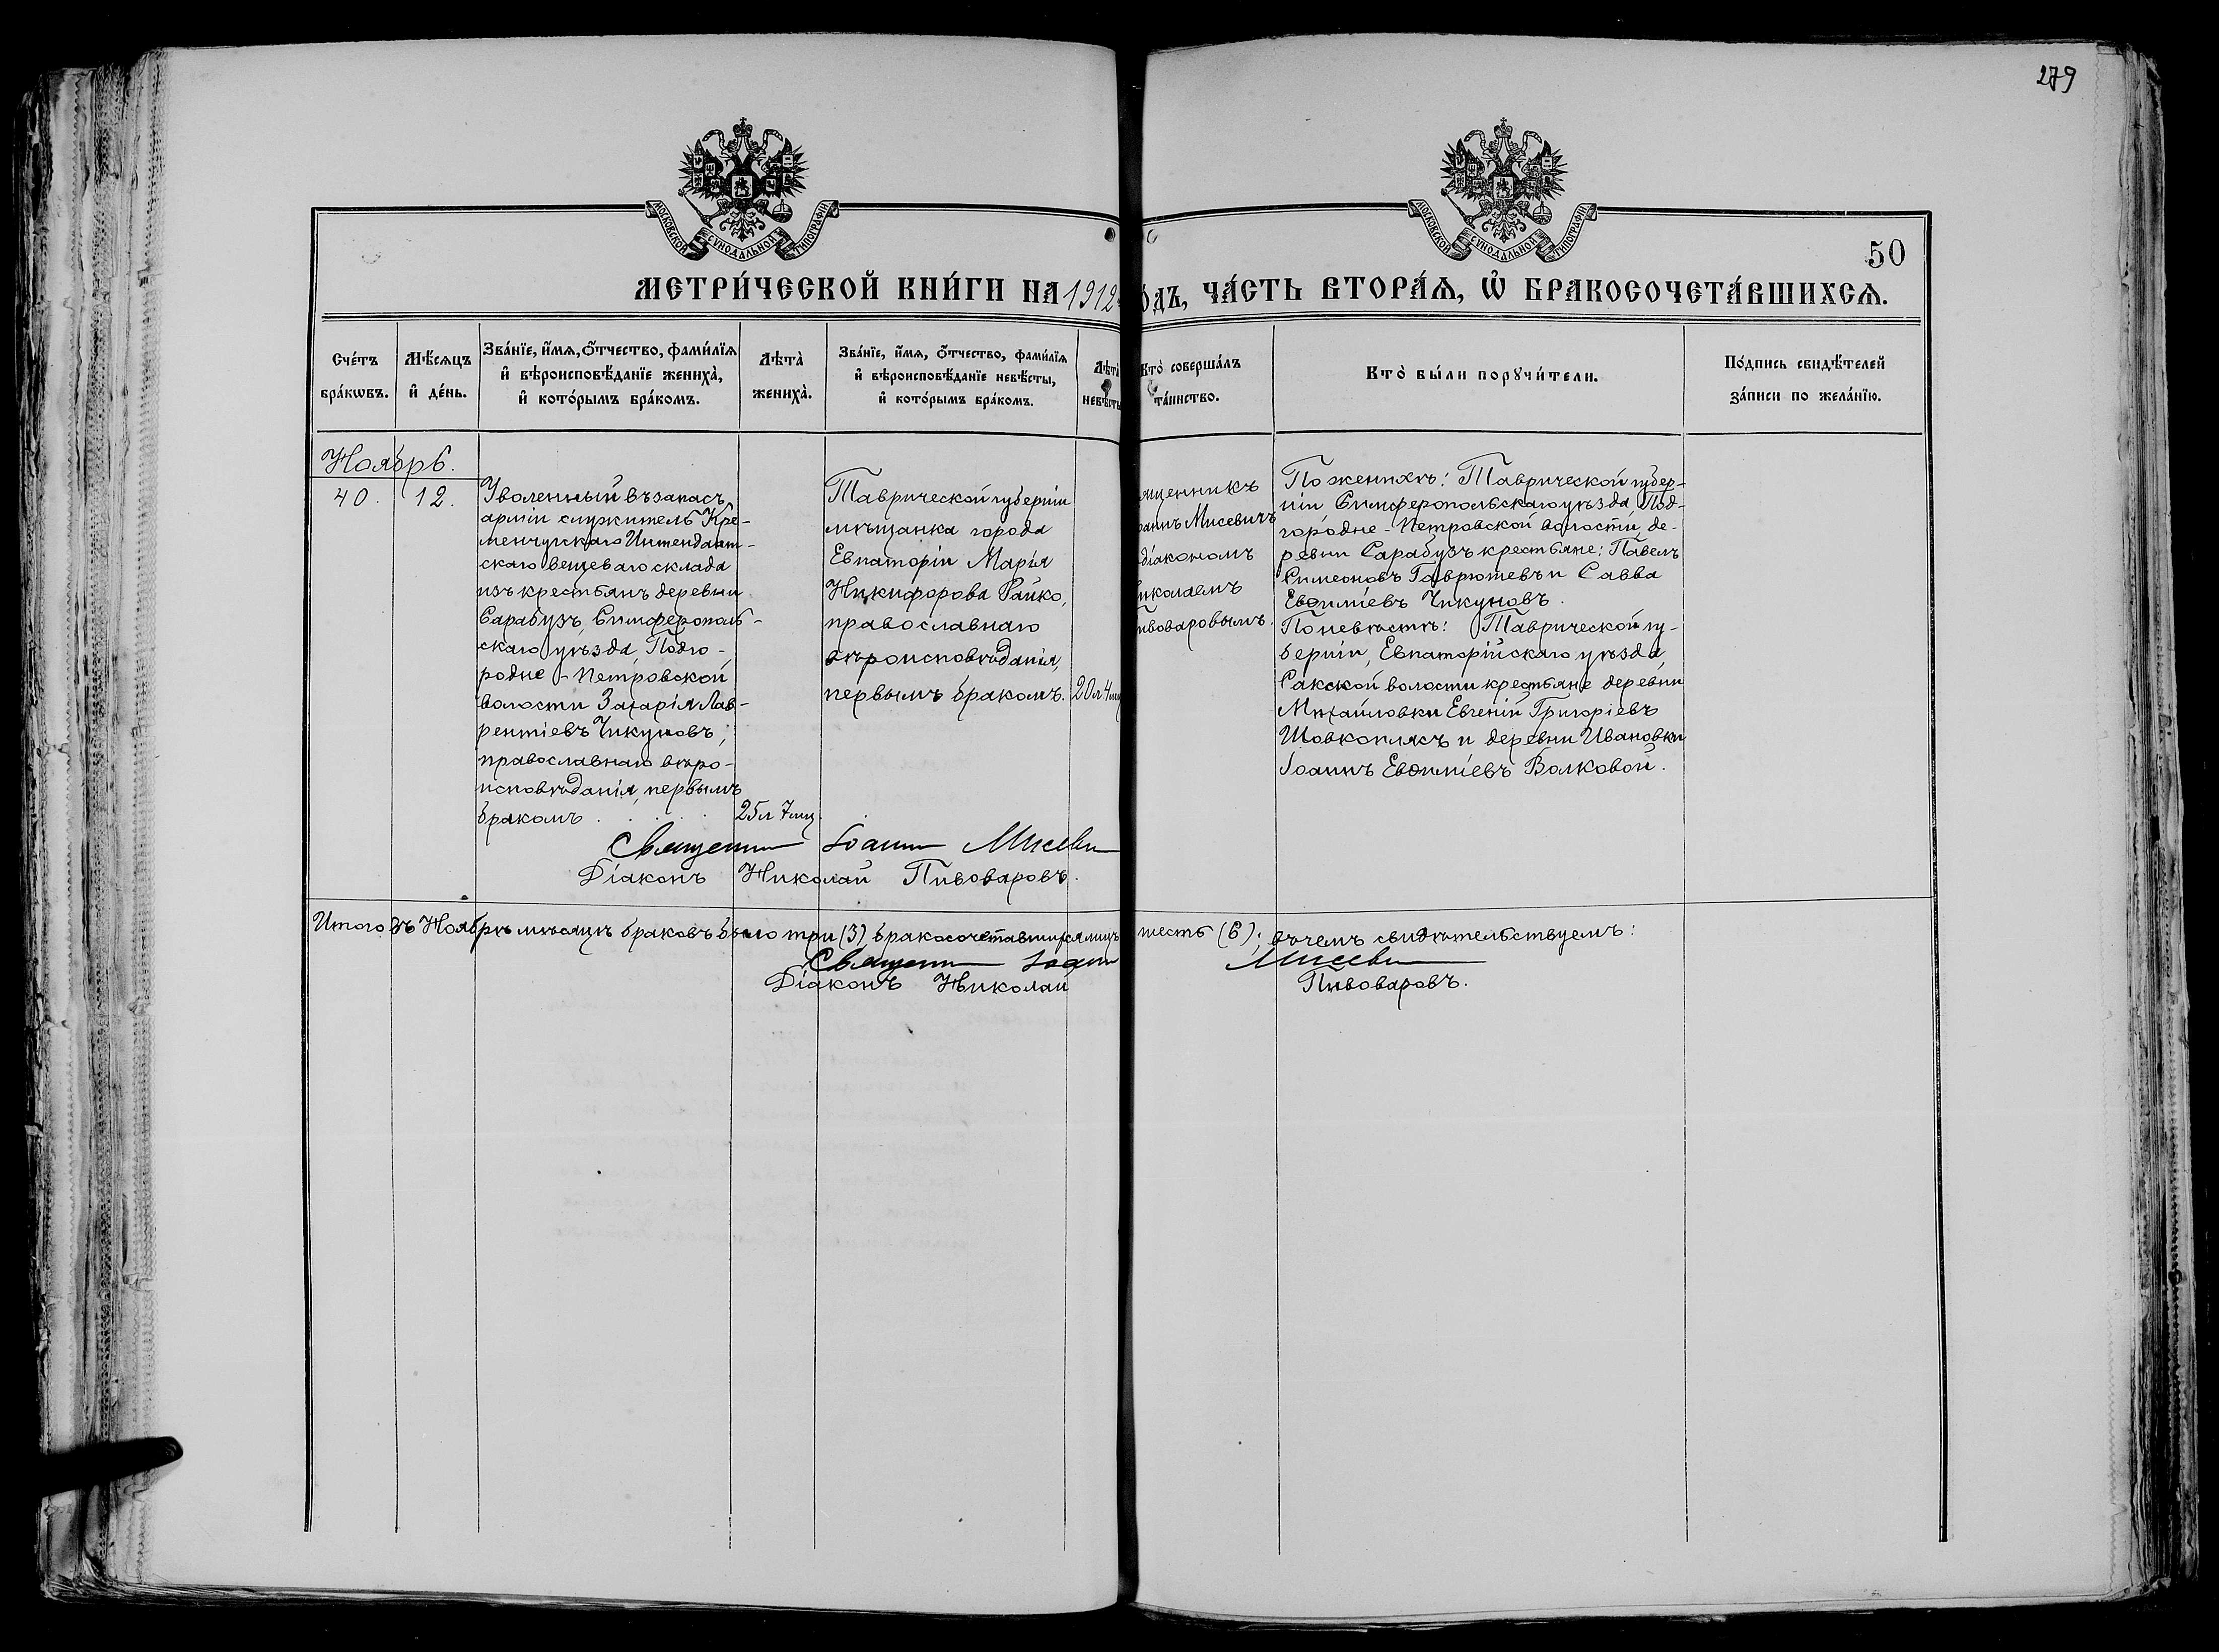 279
МОСКОВСКОЙ СѴНОДАЛЬНОЙ ТИПОГРАФІИ
МОСКОВСКОЙ СѴНОДАЛЬНОЙ ТИПОГРАФІИ
50
МЕТРИ́ЧЕСКОЙ КНИ́ГИ НА 1912 ОДЪ, ЧА́СТЬ ВТОРА́Ѧ, Ѡ҆ БРАКОСОЧЕТА́ВШИХСѦ.
Сче́тъ бра́кѡвъ.
Мѣ́сѧцъ и҆ де́нь.
Зва́нїе, и҆́мѧ, ѻ҆́тчество, фами́лїѧ
и҆ вѣроисповѣ́данїе жениха̀,
и҆ кото́рымъ бра́комъ.
Лѣта̀ жениха̀.
Зва́нїе, и҆́мѧ, ѻ҆́тчество, фами́лїѧ
и҆ вѣроисповѣ́данїе невѣ́сты,
и҆ кото́рымъ бра́комъ.
Лѣта̀ невѣсты
Кто̀ соверша́лъ та́инство.
Кто̀ бы́ли порꙋчи́тели.
По́дпись свидѣ́телей за́писи по жела́нїю.
Ноябрь.
40.
12.
Уволенный въ запасъ
арміи служитель Кре-
менчугскаго Интендант-
скаго вещеваго склада
изъ крестьянъ деревни
Сарабузъ, Симферополь-
скаго уѣзда, Подго-
родне-Петровской
волости Захарія Лав-
рентіевъ Чикуновъ,
православнаго вѣро-
исповѣданія, первымъ
бракомъ . . . .
25 л 7 мц.
Таврической губерніи
мѣщанка города
Евпаторіи Марія
Никифорова Райко,
православнаго
вѣроисповѣданія,
первымъ бракомъ.
20 л 4 мц
ященникъ
аннъ Мисевичъ
діакономъ
иколаемъ
ивоваровымъ.
По женихѣ: Таврической губер-
ніи Симферопольскаго уѣзда, Под-
городне-Петровской волости, де-
ревни Сарабузъ крестьяне: Павелъ
Симеоновъ Гаврютевъ и Савва
Евѳиміевъ Чикуновъ.
По невѣстѣ: Таврической гу-
берніи, Евпаторійскаго уѣзда,
Сакской волости крестьяне деревни
Михайловки Евгеній Григоріевъ
Шовкоплясъ и деревни Ивановки
Іоаннъ Евѳиміевъ Волковой.
Священник Іоанн Мисевич
Діаконъ Николай Пивоваровъ.
Итого въ Ноябрѣ мѣсяцѣ браковъ было три (3), бракосочетавшихся лицъ шесть (6); въ чемъ свидѣтельствуемъ:
Священник Іоанн Мисевич
Діаконъ Николай Пивоваровъ.